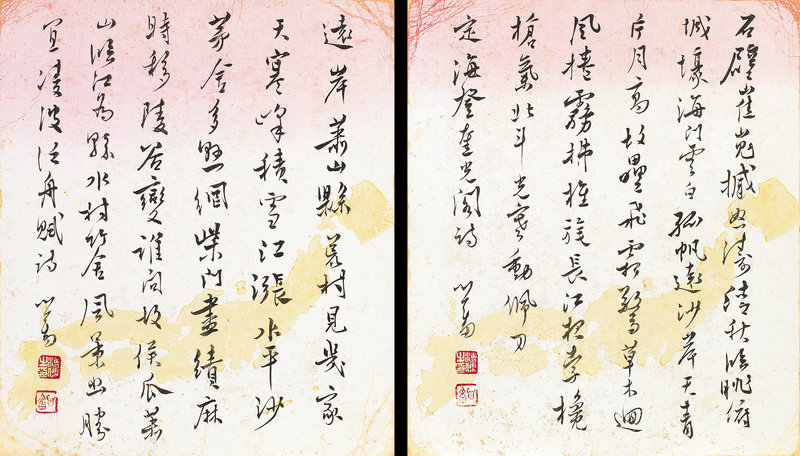 石壁崔嵬撼怒濤清秋臨眺俯
城壕海門雲白孤帆遠沙岸天青
片月高故壘飛霜驚草木迴
風捲霧拂旌旄長江夜孛欃
槍氣北斗光寒動佩刀
定海登奎光閣詩 心畬
遠岸蕭山縣荒村見幾家
天寒峰積雪江漲水平沙
茅舍多懸網柴門盡績麻
時移陵谷變誰問故侯瓜蕭
山臨江為縣水村竹舍風景幽勝
宜凌波江舟賦詩 心畬